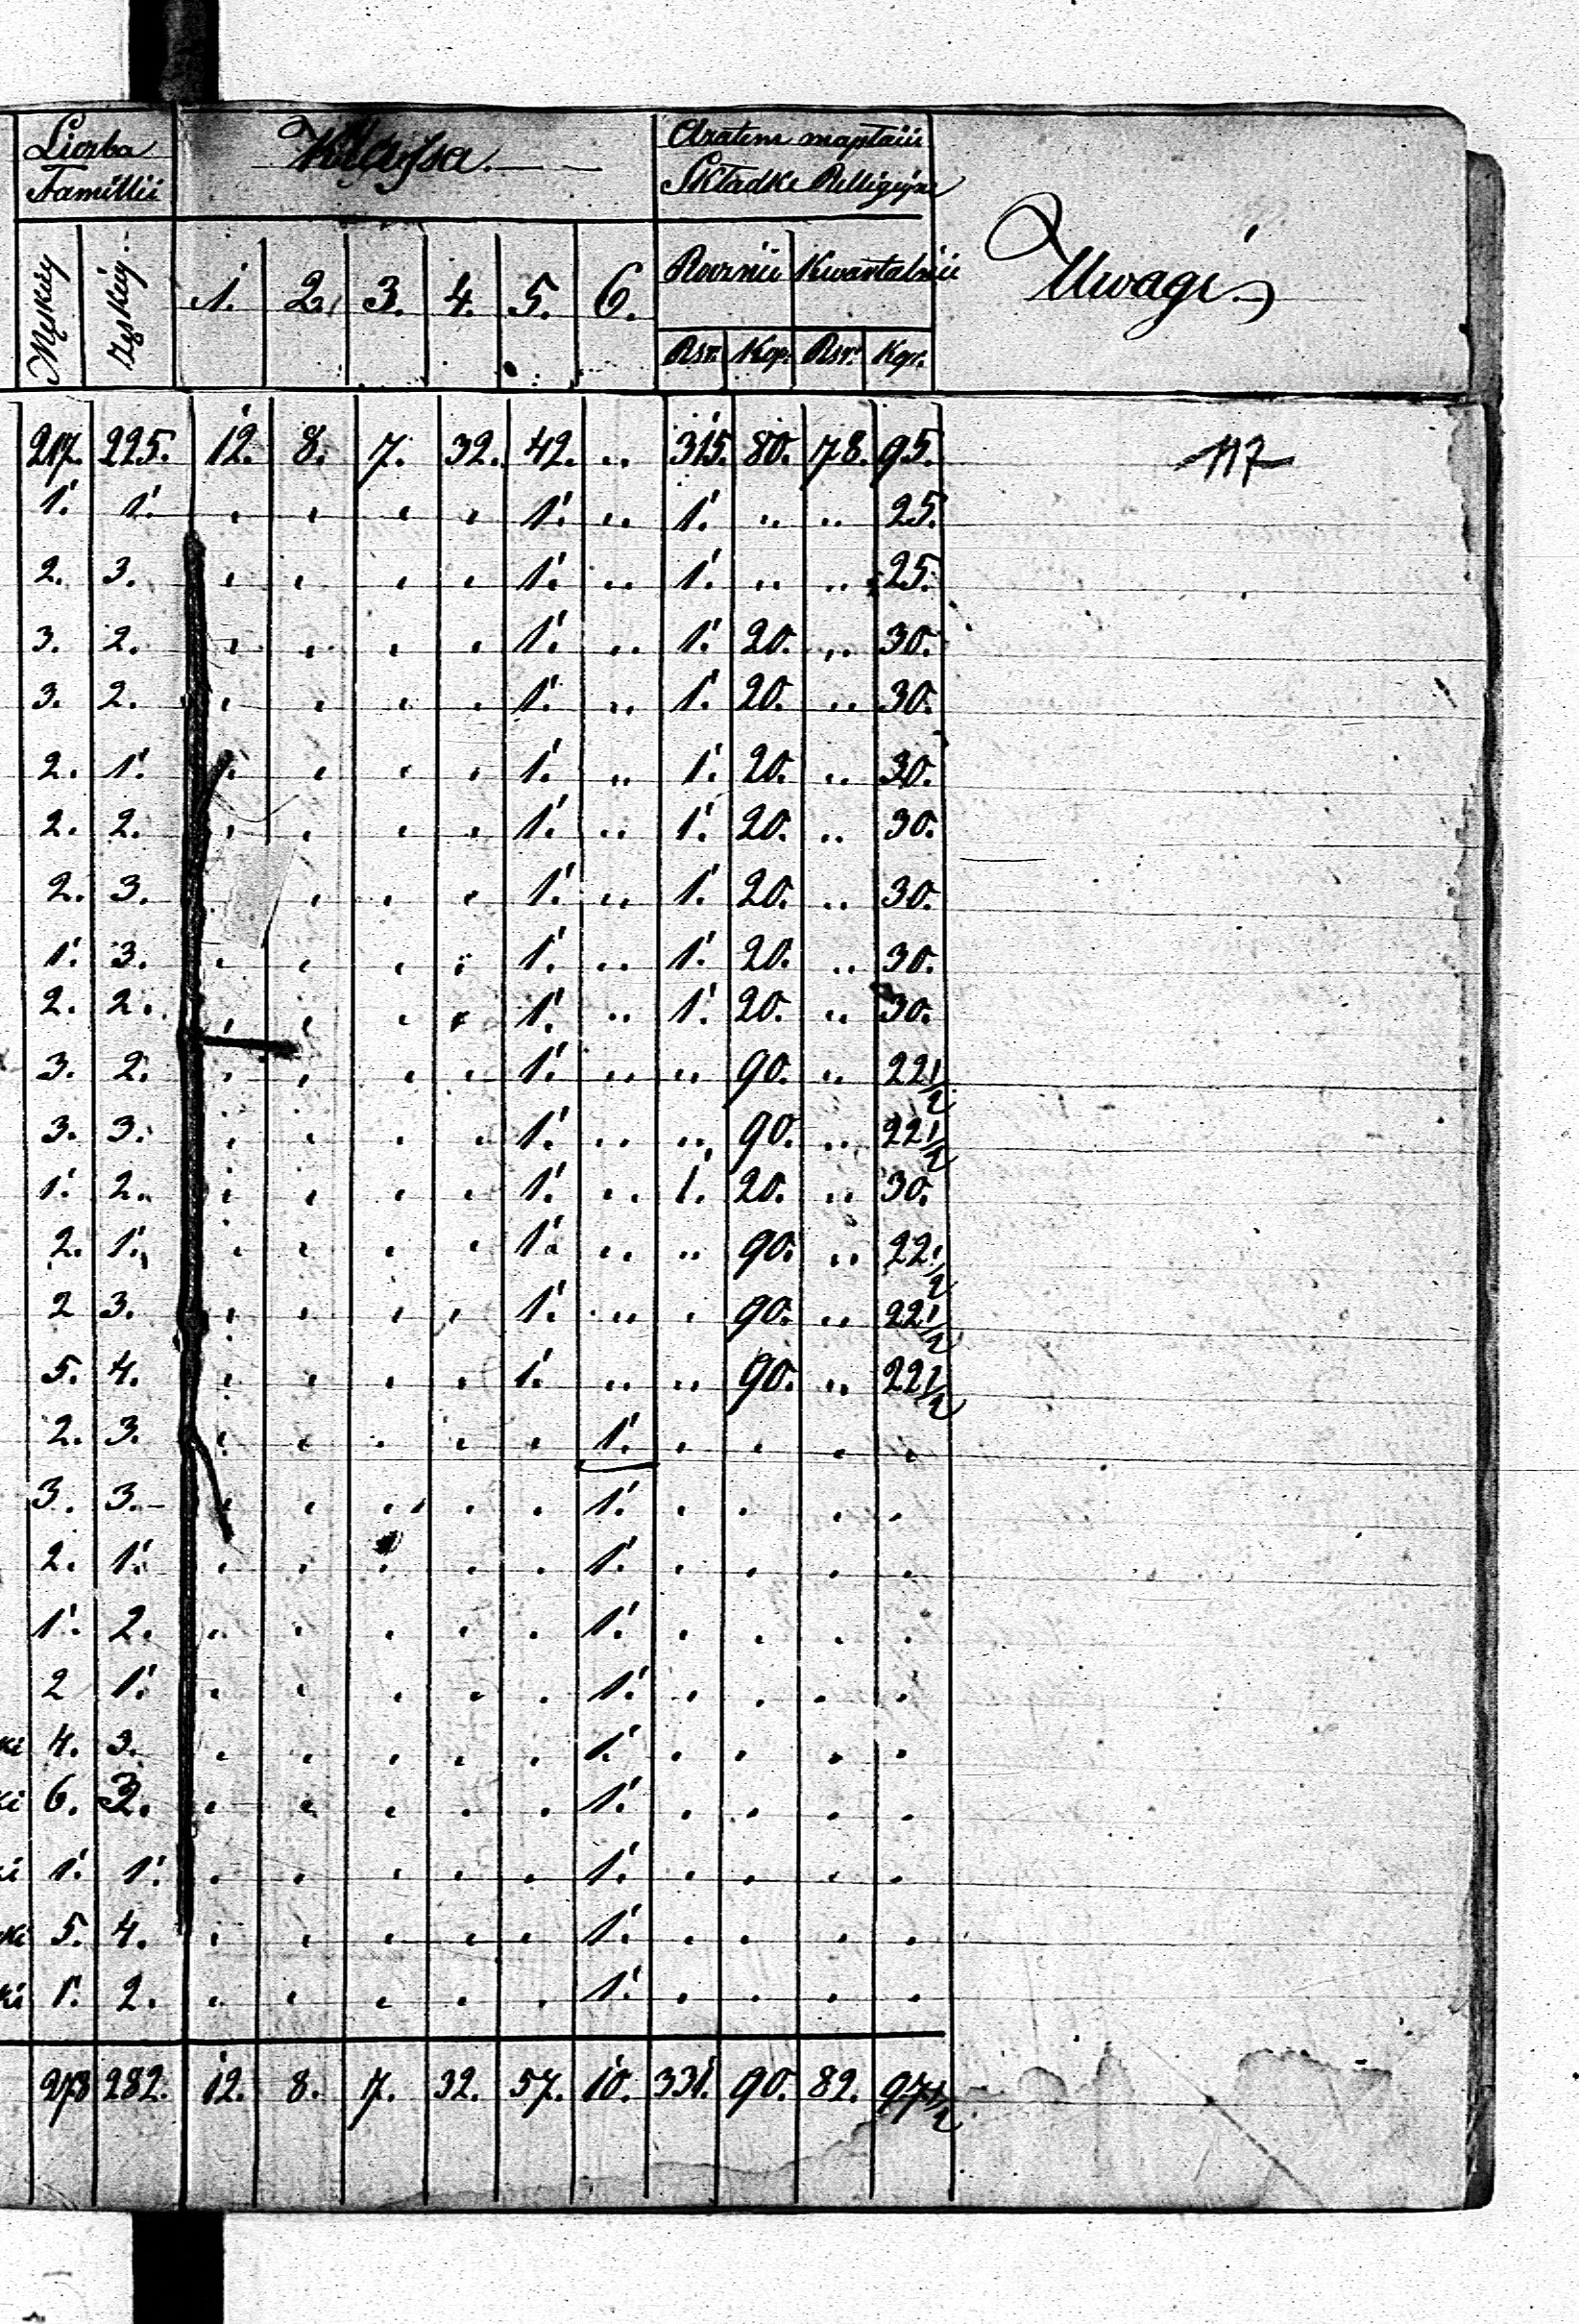 Liczba Klassa. Razem zapłacił
Familii Składki Religijne
Męskiey Żyskiey 1. 2. 3. 4. 5. 6. Rocznie Kwartalnie Uwagi
Rsr. Kop. Rsr. Kop.
217. 225. 12. 8. 7. 32. 42. .. 315. 80. 78. 95. 117
1. 1. . . . . 1. .. 1. .. .. 25.
2. 3. . . . . 1. .. 1. .. .. 25.
3. 2. . . . . 1. .. 1. 20. .. 30.
3. 2. . . . . 1. .. 1. 20. .. 30.
2. 1. . . . . 1. .. 1. 20. .. 30.
2. 2. . . . . 1. .. 1. 20. .. 30.
2. 3. . . . 1. .. 1. 20. .. 30.
1. 3. . . . . 1. .. 1. 20. .. 30.
2. 2. . . . . 1. .. 1. 20. .. 30.
3. 2. . . . . 1. .. .. 90. .. 22 1/2
3. 3. . . . . 1. .. .. 90. .. 22 1/2
1. 2. . . . . 1. .. 1. 20. .. 30.
2. 1. . . . . 1. .. .. 90. .. 22 1/2
2 3. . . . . 1. .. . 90. .. 22 1/2
5. 4. . . . . 1. .. .. 90. .. 22 1/2
2. 3. . . . . . 1. . . . .
3. 3. . . . . . 1. . . . .
2. 1. . . . . . 1. . . . .
1. 2. . . . . . 1. . . . .
2 1. . . . . . 1. . . . .
ki 4. 3. . . . . . 1. . . . .
ki 6. 3. . . . . . 1. . . . .
ki 1. 1. . . . . . 1. . . . .
ki 5. 4. . . . . . 1. . . . .
ki 1. 2. . . . . . 1. . . . .
278 282. 12. 8. 7. 32. 57. 10. 331. 90. 82. 97 1/2